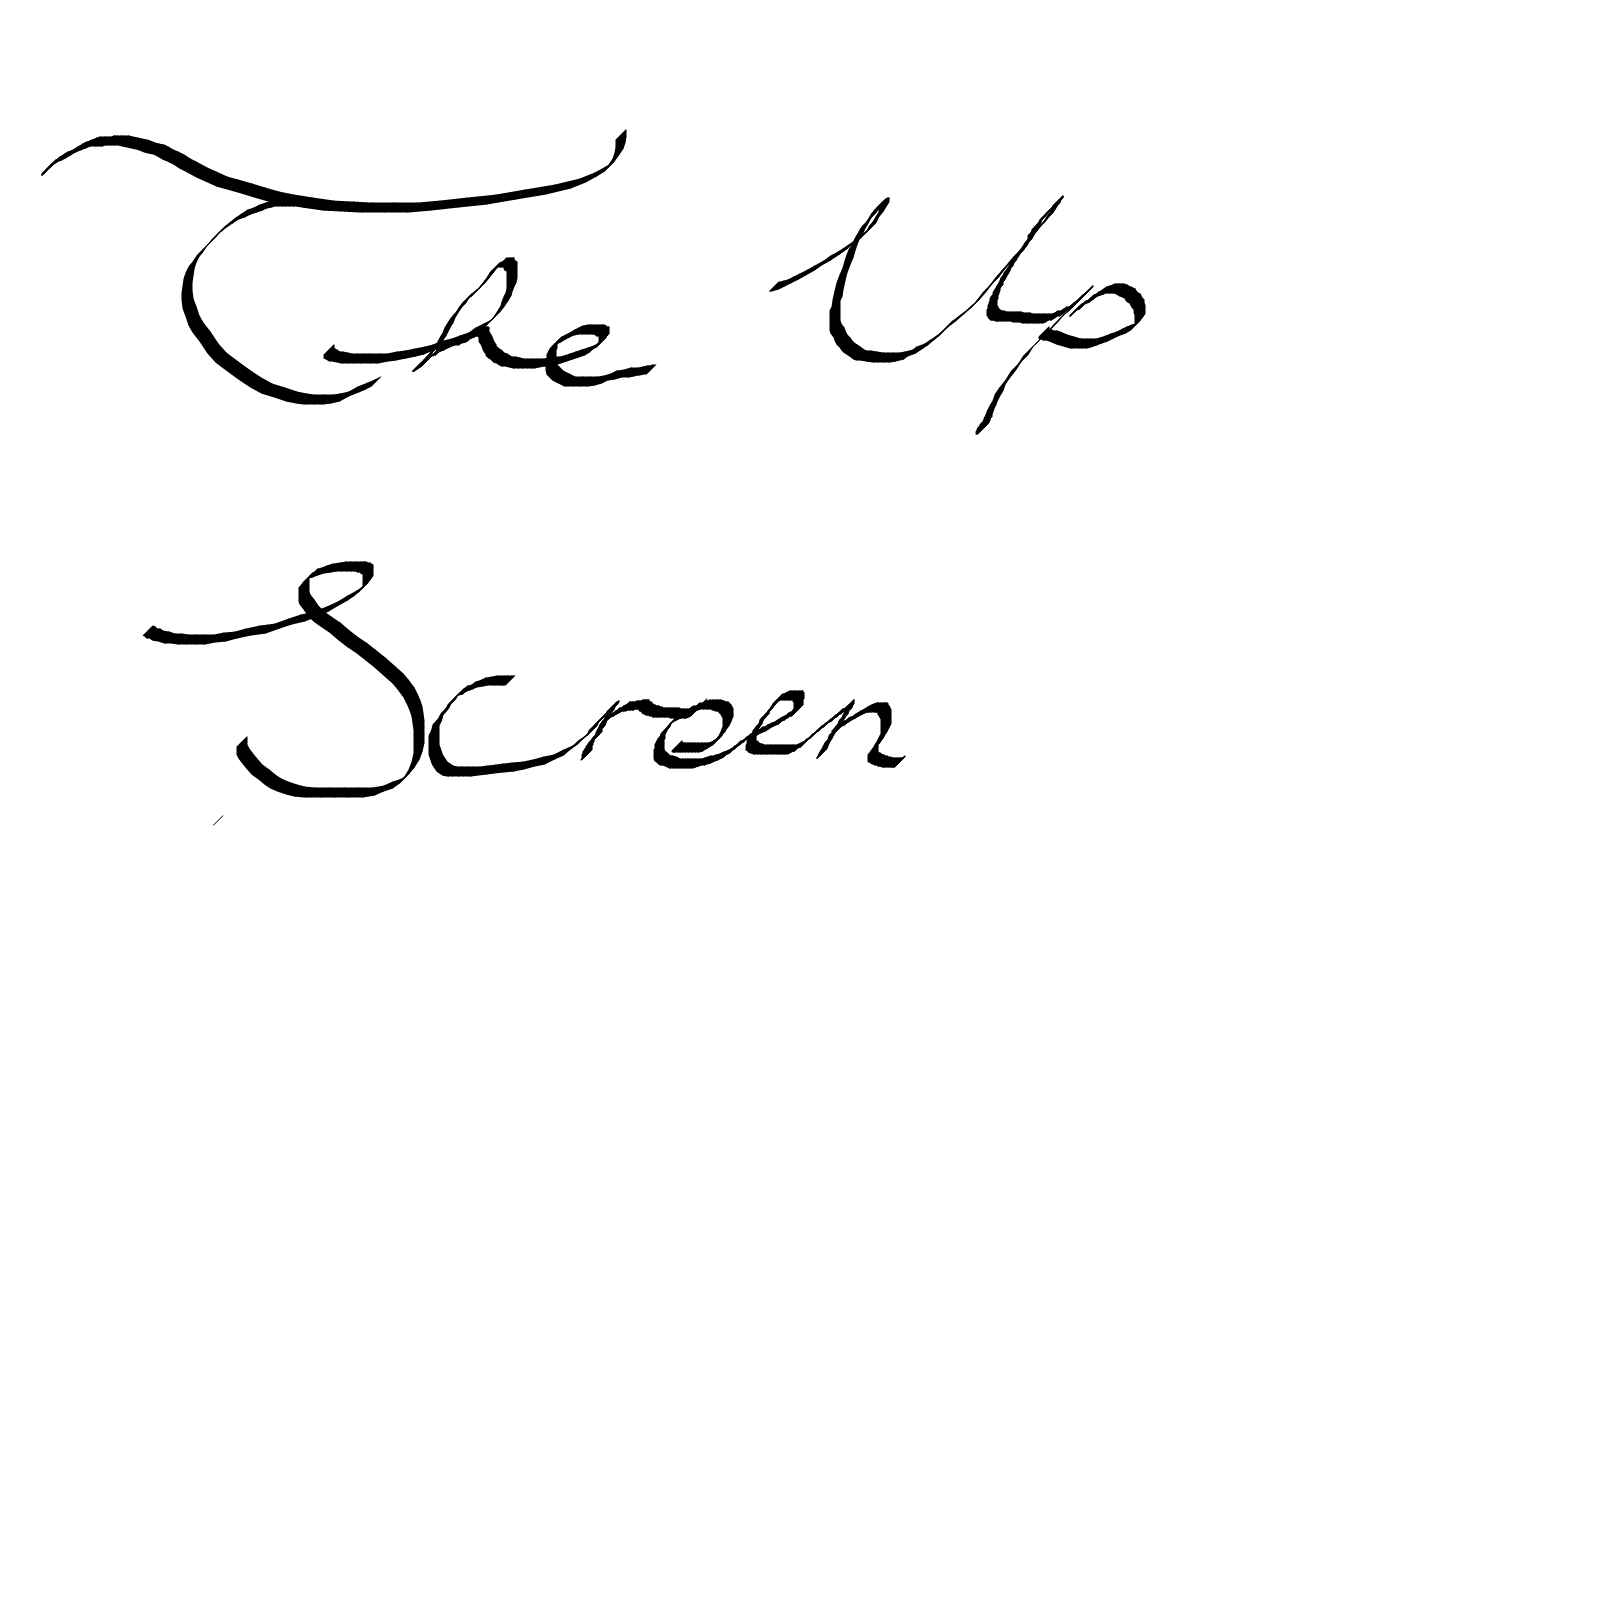 The Up
Screen